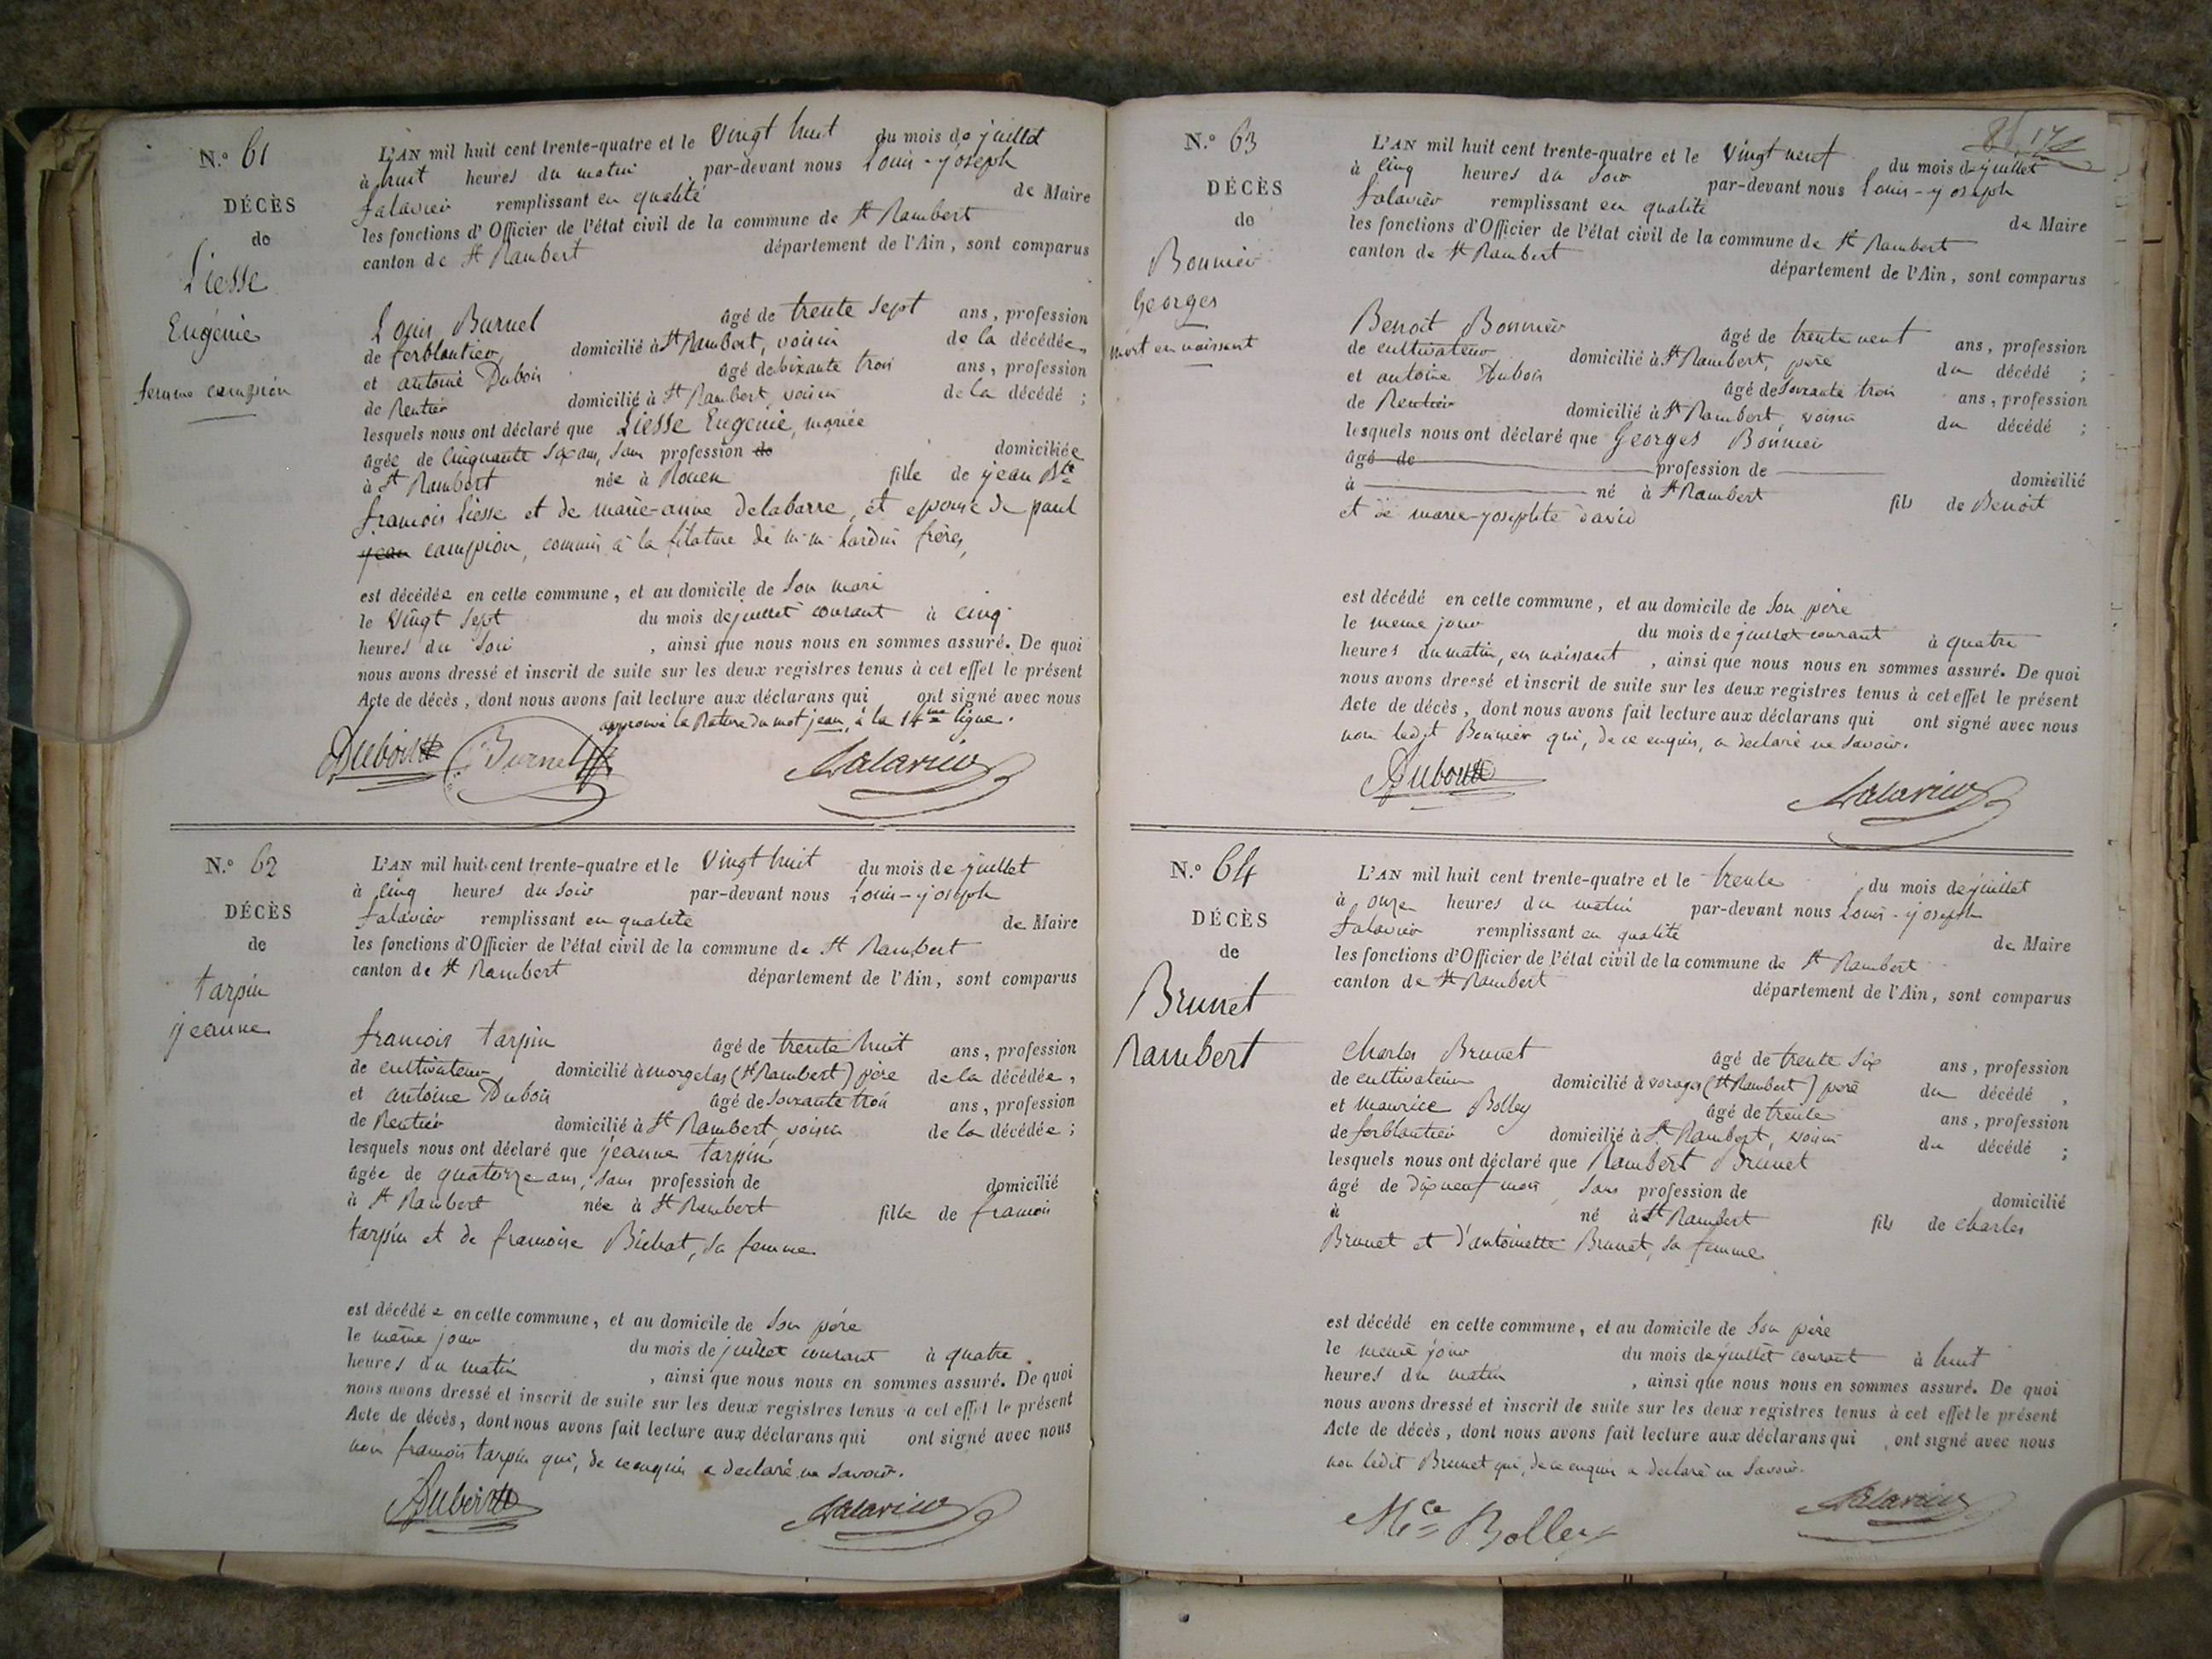 N.° 61
DÉCÈS
de
Liesse
Eugénie
femme campion
L'AN mil huit cent trente-quatre et le Vingt huit du mois de juillet
à huit heures du matin par-devant nous Louis-joseph
falavier remplissant en qualité de Maire
les fonctions d'Officier de l'état civil de la commune de St Rambert
canton de St Rambert département de l'Ain, sont comparus
Louis Burnel âgé de trente sept ans, profession
de ferblantier, domicilié à St Rambert, voisin de la décédée,
et antoine Dubois âgé de soixante trois ans, profession
de Rentier domicilié à St Rambert, voisin de la décédé ;
lesquels nous ont déclaré que Liesse Eugénie, mariée
âgée de Cinquante six ans, sans profession de domiciliée
à St Rambert née à Rouen fille de jean Bte
francois Liesse et de marie-anne delabarre, et epouse de paul
jean campion, commis à la filature de m.m. hardin frères,
est décédée en cette commune, et au domicile de Son mari
le Vingt Sept du mois de juillet courant à cinq
heures du Soir , ainsi que nous nous en sommes assuré. De quoi
nous avons dressé et inscrit de suite sur les deux registres tenus à cet effet le présent
Acte de décès, dont nous avons fait lecture aux déclarans qui ont signé avec nous
approuvé la Rature du mot jean, à la 14me ligne.
Dubois Burnel falavier
N.° 62
DÉCÈS
de
tarpin
jeanne
L'AN mil huit cent trente-quatre et le Vingt huit du mois de juillet
à cinq heures du Soir par-devant nous Louis-joseph
falavier remplissant en qualité de Maire
les fonctions d'Officier de l'état civil de la commune de St Rambert
canton de St Rambert département de l'Ain, sont comparus
francois tarpin âgé de trente huit ans, profession
de cultivateur domicilié à morgelas (St Rambert) père de la décédée,
et antoine Dubois âgé de soixante trois ans, profession
de Rentier domicilié à St Rambert voisin de la décédée ;
lesquels nous ont déclaré que jeanne tarpin
âgée de quatorze ans, sans profession de domicilié
à St Rambert née à St Rambert fille de francois
tarpin et de francoise Bichat, sa femme
est décédée en cette commune, et au domicile de Son père
le même jour du mois de juillet courant à quatre
heures du matin , ainsi que nous nous en sommes assuré. De quoi
nous avons dressé et inscrit de suite sur les deux registres tenus à cet effet le présent
Acte de décès, dont nous avons fait lecture aux déclarans qui ont signé avec nous
non francois tarpin qui, de ce enquis a declaré ne Savoir.
Dubois falavier
N.° 63
DÉCÈS
de
Bonnier
Georges
mort en naissant
L'AN mil huit cent trente-quatre et le Vingt neuf du mois de juillet
à cinq heures du Soir par-devant nous Louis-joseph
falavier remplissant en qualité de Maire
les fonctions d'Officier de l'état civil de la commune de St Rambert
canton de St Rambert département de l'Ain, sont comparus
Benoit Bonnier âgé de trente neuf ans, profession
de cultivateur domicilié à St Rambert, père du décédé ;
et antoine Dubois âgé de soixante trois ans, profession
de Rentier domicilié à St Rambert voisin du décédé ;
lesquels nous ont déclaré que Georges Bonnier
âgé de profession de domicilié
à né à St Rambert fils de Benoit
et de marie-josephte david
est décédé en cette commune, et au domicile de Son père
le meme jour du mois de juillet courant à quatre
heures du matin, en naissant , ainsi que nous nous en sommes assuré. De quoi
nous avons dressé et inscrit de suite sur les deux registres tenus à cet effet le présent
Acte de décès, dont nous avons fait lecture aux déclarans qui ont signé avec nous
non ledit Bonnier qui, de ce enquis, a declaré ne Savoir.
Dubois falavier
N.° 64
DÉCÈS
de
Brunet
Rambert
L'AN mil huit cent trente-quatre et le trente du mois de juillet
à onze heures du matin par-devant nous Louis-joseph
falavier remplissant en qualité de Maire
les fonctions d'Officier de l'état civil de la commune de St Rambert
canton de St Rambert département de l'Ain, sont comparus
charles Brunet âgé de trente Six ans, profession
de cultivateur domicilié à vorages (St Rambert) père du décédé ,
et Maurice Bolley âgé de trente ans, profession
de ferblantier domicilié à St Rambert, voisin du décédé ;
lesquels nous ont déclaré que Rambert Brunet
âgé de dix neuf mois, Sans profession de domicilié
à né à St Rambert fils de charles
Brunet et d'antoinette Brunet, sa femme
est décédé en cette commune, et au domicile de Son père
le meme jour du mois de juillet courant à huit
heures du matin , ainsi que nous nous en sommes assuré. De quoi
nous avons dressé et inscrit de suite sur les deux registres tenus à cet effet le présent
Acte de décès, dont nous avons fait lecture aux déclarans qui ont signé avec nous
non ledit Brunet qui, de ce enquis a declaré ne Savoir.
Mce Bolley falavier